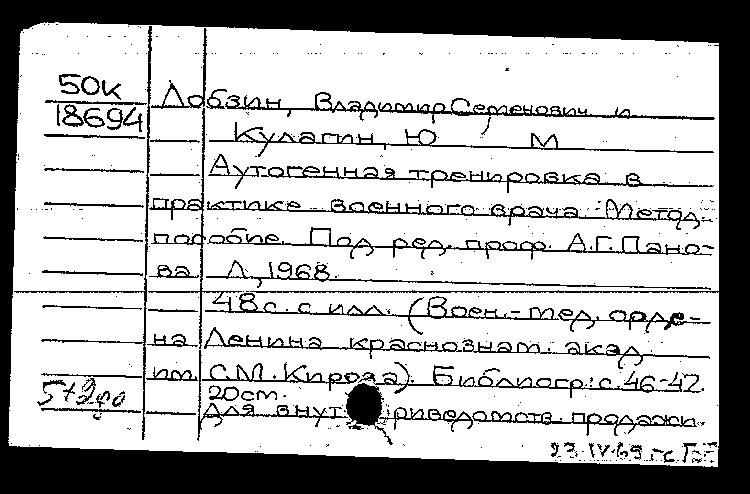 50к
18694
Лобзин, Владимир Семенович и
Кулагин, Ю М
Аутогенная тренировка в
практике военного врача Метод.
пособие. Под ред. проф. А.Г. Пано-
ва Л., 1968.
48с. с илл. (Воен.-мед. орде-
на Ленина краснознам. акад
им. С.М. Кирова). Библиогр.: с. 46-47.
20см.
Для внут риведомств. продажи.
27.IV.69